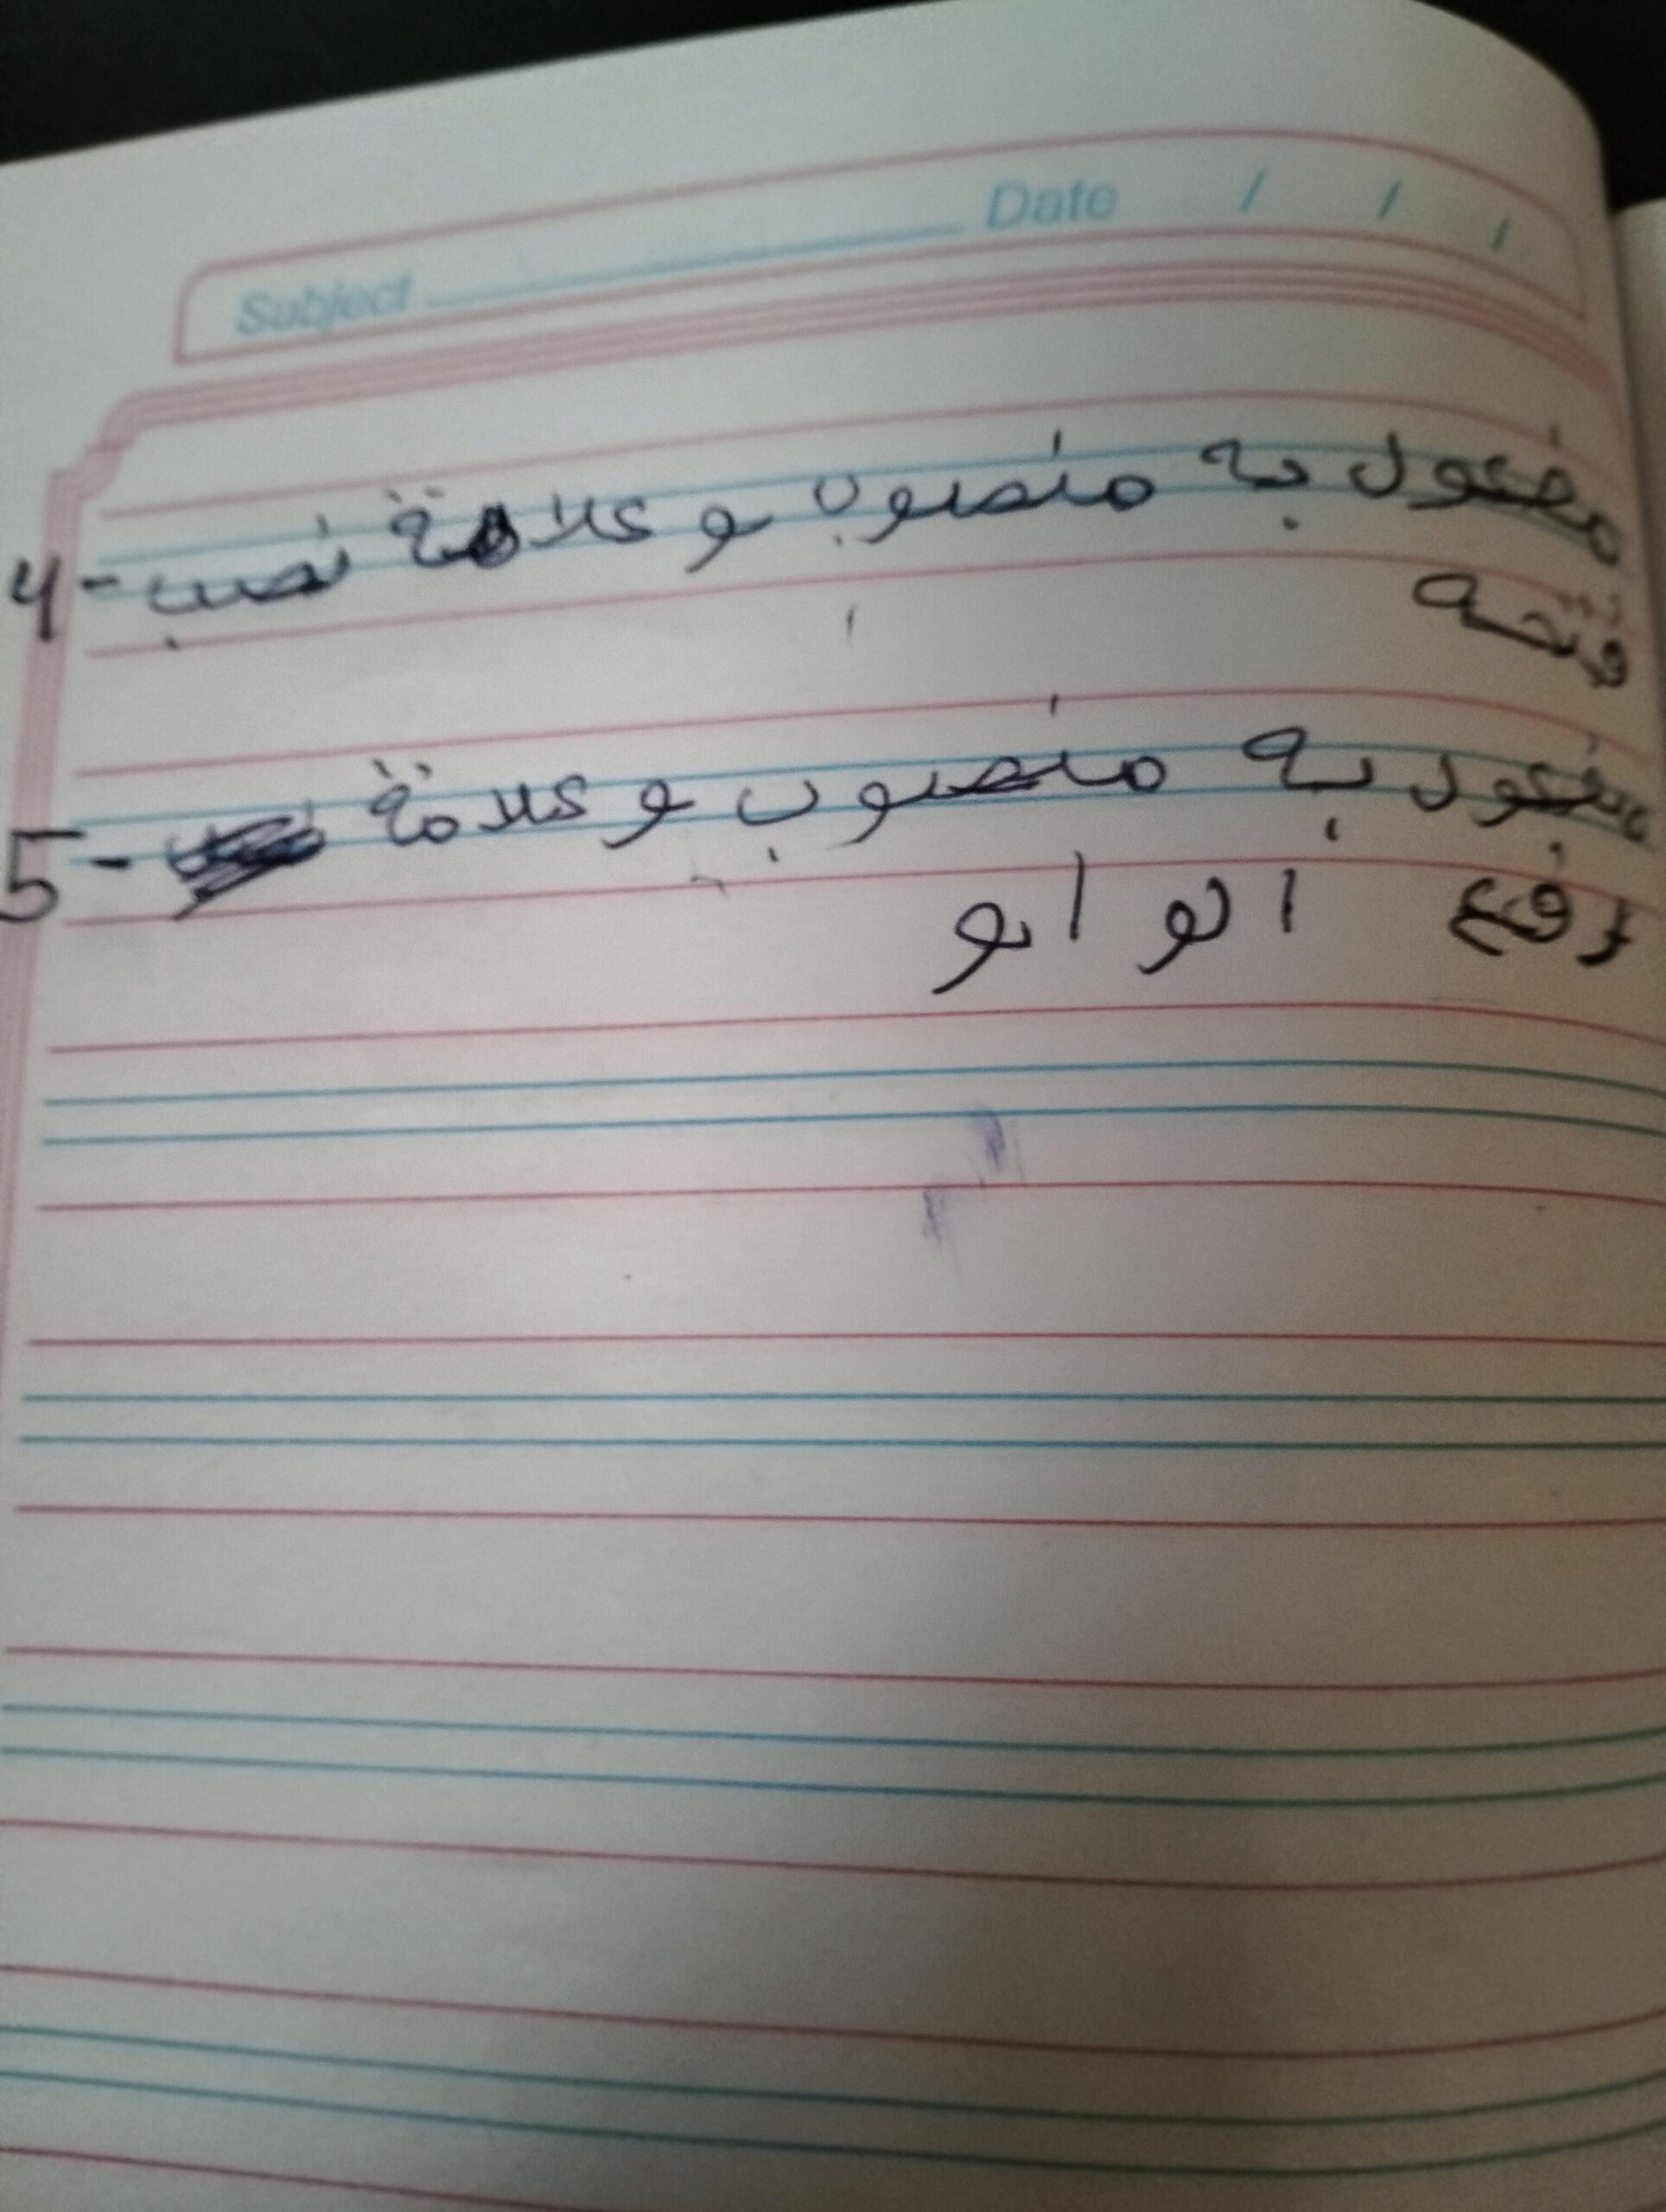 Subject Date / / /
4- مفعول به منصوب و علامة نصب
فتحه
5- مفعول به منصوب و علامة
رفع الواو